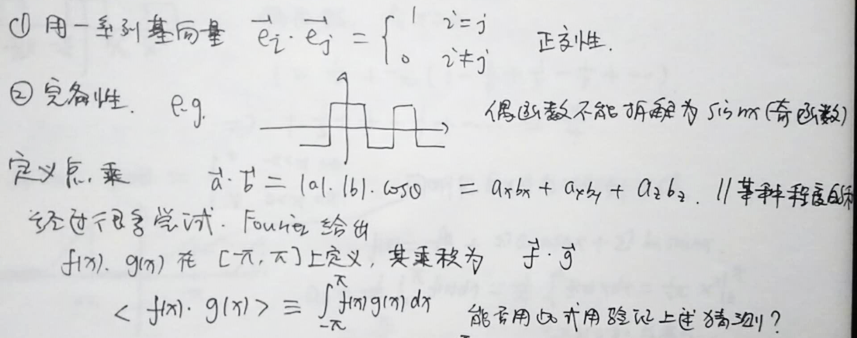 ① 用一系列基向量 $\vec{e}_i \cdot \vec{e}_j = \begin{cases} 1 & i=j \\ 0 & i \neq j \end{cases}$ 正交性.
② 完备性. e.g. 偶函数不能拆解为 sin nx (奇函数)
定义点乘 $\vec{a} \cdot \vec{b} = |a| \cdot |b| \cdot \cos\theta = a_x b_x + a_y b_y + a_z b_z$. // 某种程度的
经过很多尝试. Fourier 给出
f(x). g(x) 在 [-π, π] 上定义, 其乘积为 $\vec{f} \cdot \vec{g}$
$< f(x) \cdot g(x) > \equiv \int_{-\pi}^{\pi} f(x) g(x) dx$ 能否用此式用验证上述猜测?